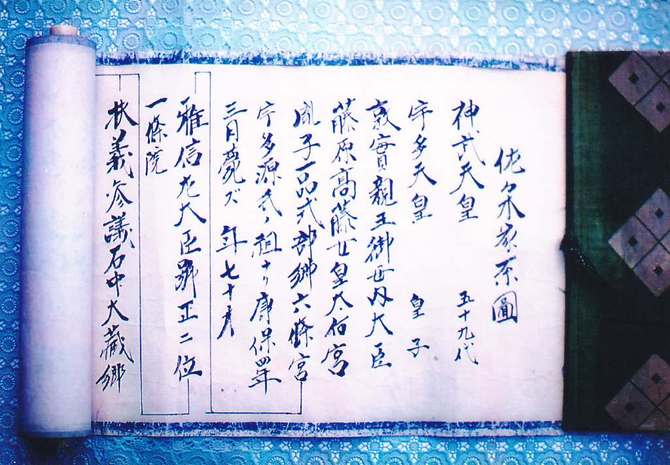 佐々木家系圖
神武天皇 五十九代
宇多天皇 皇子
敦實親王御世内大臣
藤原高藤女皇太后宮
胤子一品式部卿六條宮
宇多源氏ノ祖ナリ康保四年
三月薨ズ 年七十才
雅信左大臣 正二位
一條院
扶義参議右中大蔵卿